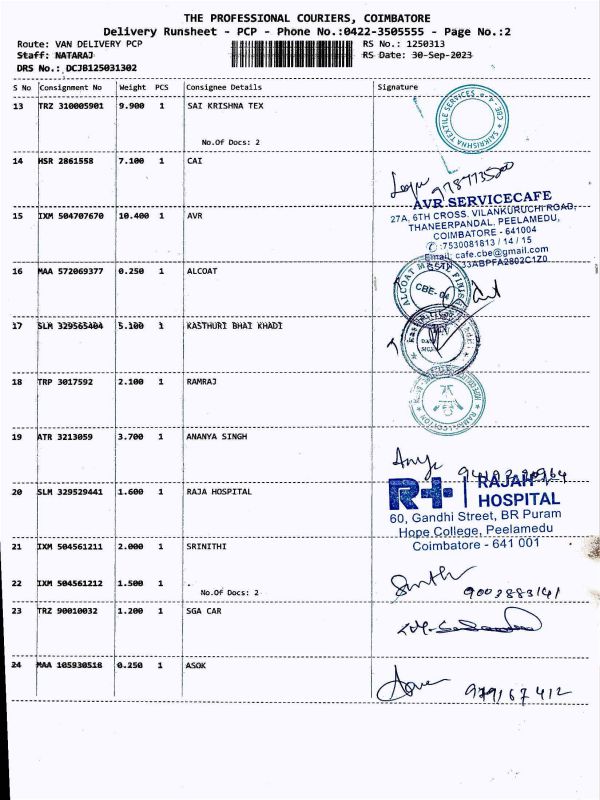 THE PROFESSIONAL COURIERS, COIMBATORE
Delivery Runsheet - PCP - Phone No.:0422-3505555 - Page No.:2
Route: VAN DELIVERY PCP RS No.: 1250313
Staff: NATARAJ RS Date: 30-Sep-2023
DRS No.: DCJB125031302
S No Consignment No Weight PCS Consignee Details Signature
13 TRZ 310005901 9.900 1 SAI KRISHNA TEX
No.Of Docs: 2
SAIKRISHNA TEXTILE SERVICES
14 HSR 2861558 7.100 1 CAI
AVR SERVICECAFE
15 IXM 504707670 10.400 1 AVR
27A, 6TH CROSS, VILANKURUCHI ROAD,
THANEERPANDAL, PEELAMEDU,
COIMBATORE - 641004
✆:7530081813 / 14 / 15
Email: cafe.cbe@gmail.com
16 MAA 572069377 0.250 1 ALCOAT
CBE-04
17 SLM 329565404 5.100 1 KASTHURI BHAI KHADI
18 TRP 3017592 2.100 1 RAMRAJ
19 ATR 3213059 3.700 1 ANANYA SINGH
20 SLM 329529441 1.600 1 RAJA HOSPITAL
R+ RAJAH
HOSPITAL
60, Gandhi Street, BR Puram
Hope College, Peelamedu
Coimbatore - 641 001
21 IXM 504561211 2.000 1 SRINITHI
22 IXM 504561212 1.500 1 .
No.Of Docs: 2
9003883141
23 TRZ 90010032 1.200 1 SGA CAR
24 MAA 105930518 0.250 1 ASOK